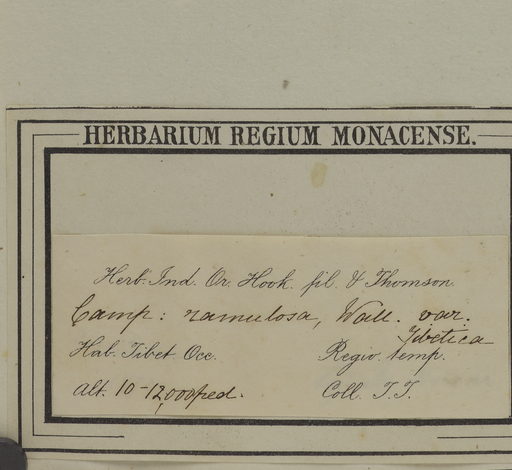 HERBARIUM REGIUM MONACENSE.
Herb. Ind. Or. Hook. fil. & Thomson
Camp: ramulosa, Wall. var.
Tibetica
Hab. Tibet Occ. Regio. temp.
Alt. 10-12,000 ped. Coll. T.T.